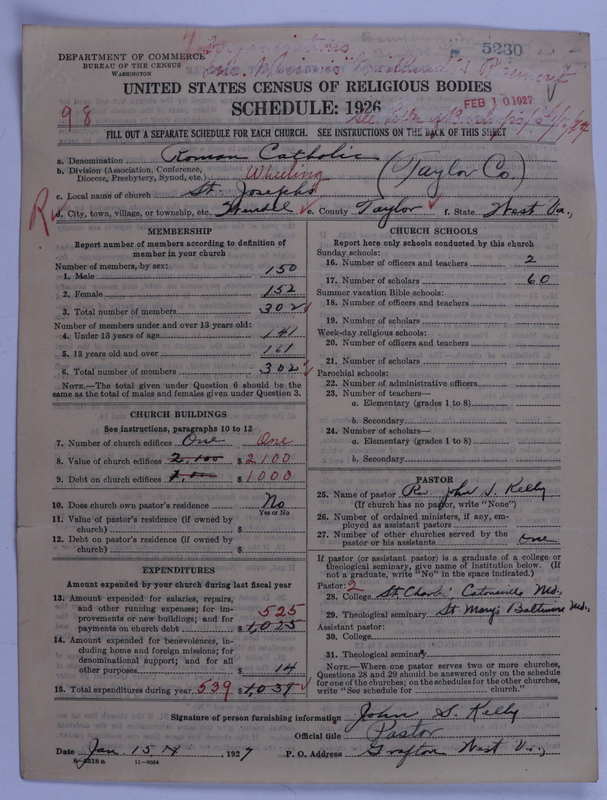 DEPARTMENT OF COMMERCE
BUREAU OF THE CENSUS
WASHINGTON
5230
UNITED STATES CENSUS OF RELIGIOUS BODIES
SCHEDULE: 1926
FEB 10 1927
98
FILL OUT A SEPARATE SCHEDULE FOR EACH CHURCH. SEE INSTRUCTIONS ON THE BACK OF THIS SHEET
a. Denomination Roman Catholic
b. Division (Association, Conference, Diocese, Presbytery, Synod, etc.) Wheeling (Taylor Co.)
c. Local name of church St. Josephs
d. City, town, village, or township, etc. Wendel e. County Taylor f. State West Va.,
MEMBERSHIP
Report number of members according to definition of member in your church
Number of members, by sex:
1. Male 150
2. Female 152
3. Total number of members 302
Number of members under and over 13 years old:
4. Under 13 years of age 141
5. 13 years old and over 161
6. Total number of members 302
NOTE.—The total given under Question 6 should be the same as the total of males and females given under Question 3.
CHURCH BUILDINGS
See instructions, paragraphs 10 to 12
7. Number of church edifices One One
8. Value of church edifices 2,100 $ 2100
9. Debt on church edifices $ 1000
10. Does church own pastor's residence No
Yes or No
11. Value of pastor's residence (if owned by church) $
12. Debt on pastor's residence (if owned by church) $
EXPENDITURES
Amount expended by your church during last fiscal year
13. Amount expended for salaries, repairs, and other running expenses; for improvements or new buildings; and for payments on church debt 525 $ 1,025
14. Amount expended for benevolences, including home and foreign missions; for denominational support; and for all other purposes $ 14
15. Total expenditures during year 539 $ 1,039
CHURCH SCHOOLS
Report here only schools conducted by this church
Sunday schools:
16. Number of officers and teachers 2
17. Number of scholars 60
Summer vacation Bible schools:
18. Number of officers and teachers
19. Number of scholars
Week-day religious schools:
20. Number of officers and teachers
21. Number of scholars
Parochial schools:
22. Number of administrative officers
23. Number of teachers—
a. Elementary (grades 1 to 8)
b. Secondary
24. Number of scholars—
a. Elementary (grades 1 to 8)
b. Secondary
PASTOR
25. Name of pastor Rev. John S. Kelly
(If church has no pastor, write "None")
26. Number of ordained ministers, if any, employed as assistant pastors
27. Number of other churches served by the pastor or his assistants one
If pastor (or assistant pastor) is a graduate of a college or theological seminary, give name of institution below. (If not a graduate, write "No" in the space indicated.)
Pastor: 2
28. College St Charles, Catonsville Md.,
29. Theological seminary St Marys Baltimore Md.,
Assistant pastor:
30. College
31. Theological seminary
NOTE.—Where one pastor serves two or more churches, Questions 28 and 29 should be answered only on the schedule for one of the churches; on the schedules for the other churches, write "See schedule for church."
Signature of person furnishing information John S. Kelly
Official title Pastor
Date Jan 15 th, 1927 P. O. Address Grafton West Va.,
8-2318a 11-9064